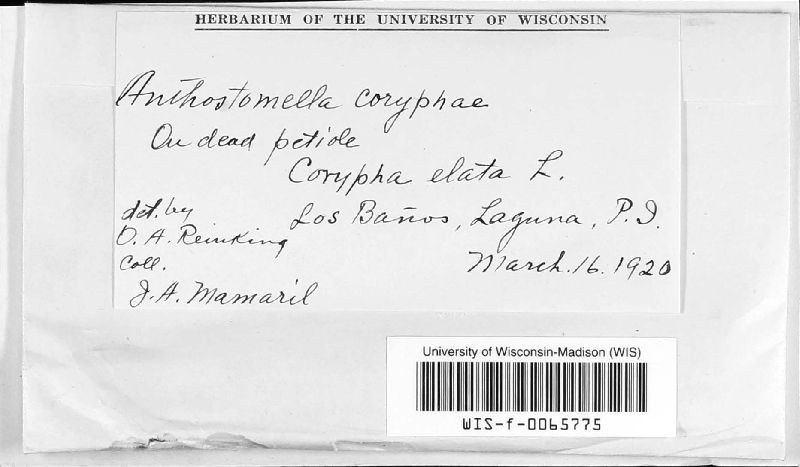 HERBARIUM OF THE UNIVERSITY OF WISCONSIN
Anthostomella coryphae
On dead petiole
Corypha elata L.
Los Baños, Laguna, P.I.
March. 16. 1920
det. by
O. A. Reinking
Coll.
J. A. Mamaril
University of Wisconsin-Madison (WIS)
WIS-f-0065775